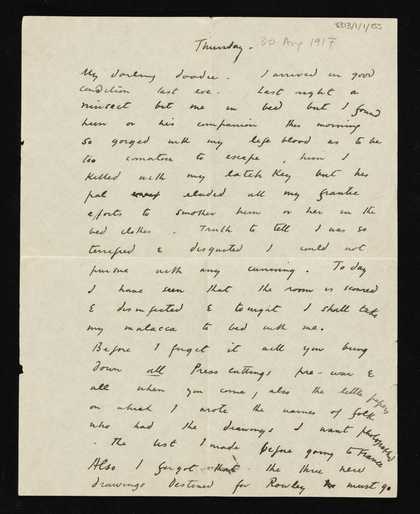 Thursday. 30 Aug 1917
My darling doodie. I arrived in good
condition last eve. Last night a
minsect bit me in bed but I found
him or his companion this morning
so gorged with my life blood as to be
too comatose to escape, him I
killed with my latch key but his
pal eluded all my frantic
efforts to smother him or her in the
bed clothes. Truth to tell I was so
terrified & disgusted I could not
pursue with any cunning. To day
I have seen that the room is scoured
& disinfected & tonight I shall take
my malacca to bed with me.
Before I forget it will you bring
down all Press cuttings pre-war &
all when you come, also the little papers
on which I wrote the names of folk
who had the drawings I want photographed
. The list I made before going to France
Also I forgot that the three new
drawings destined for Rowley must go